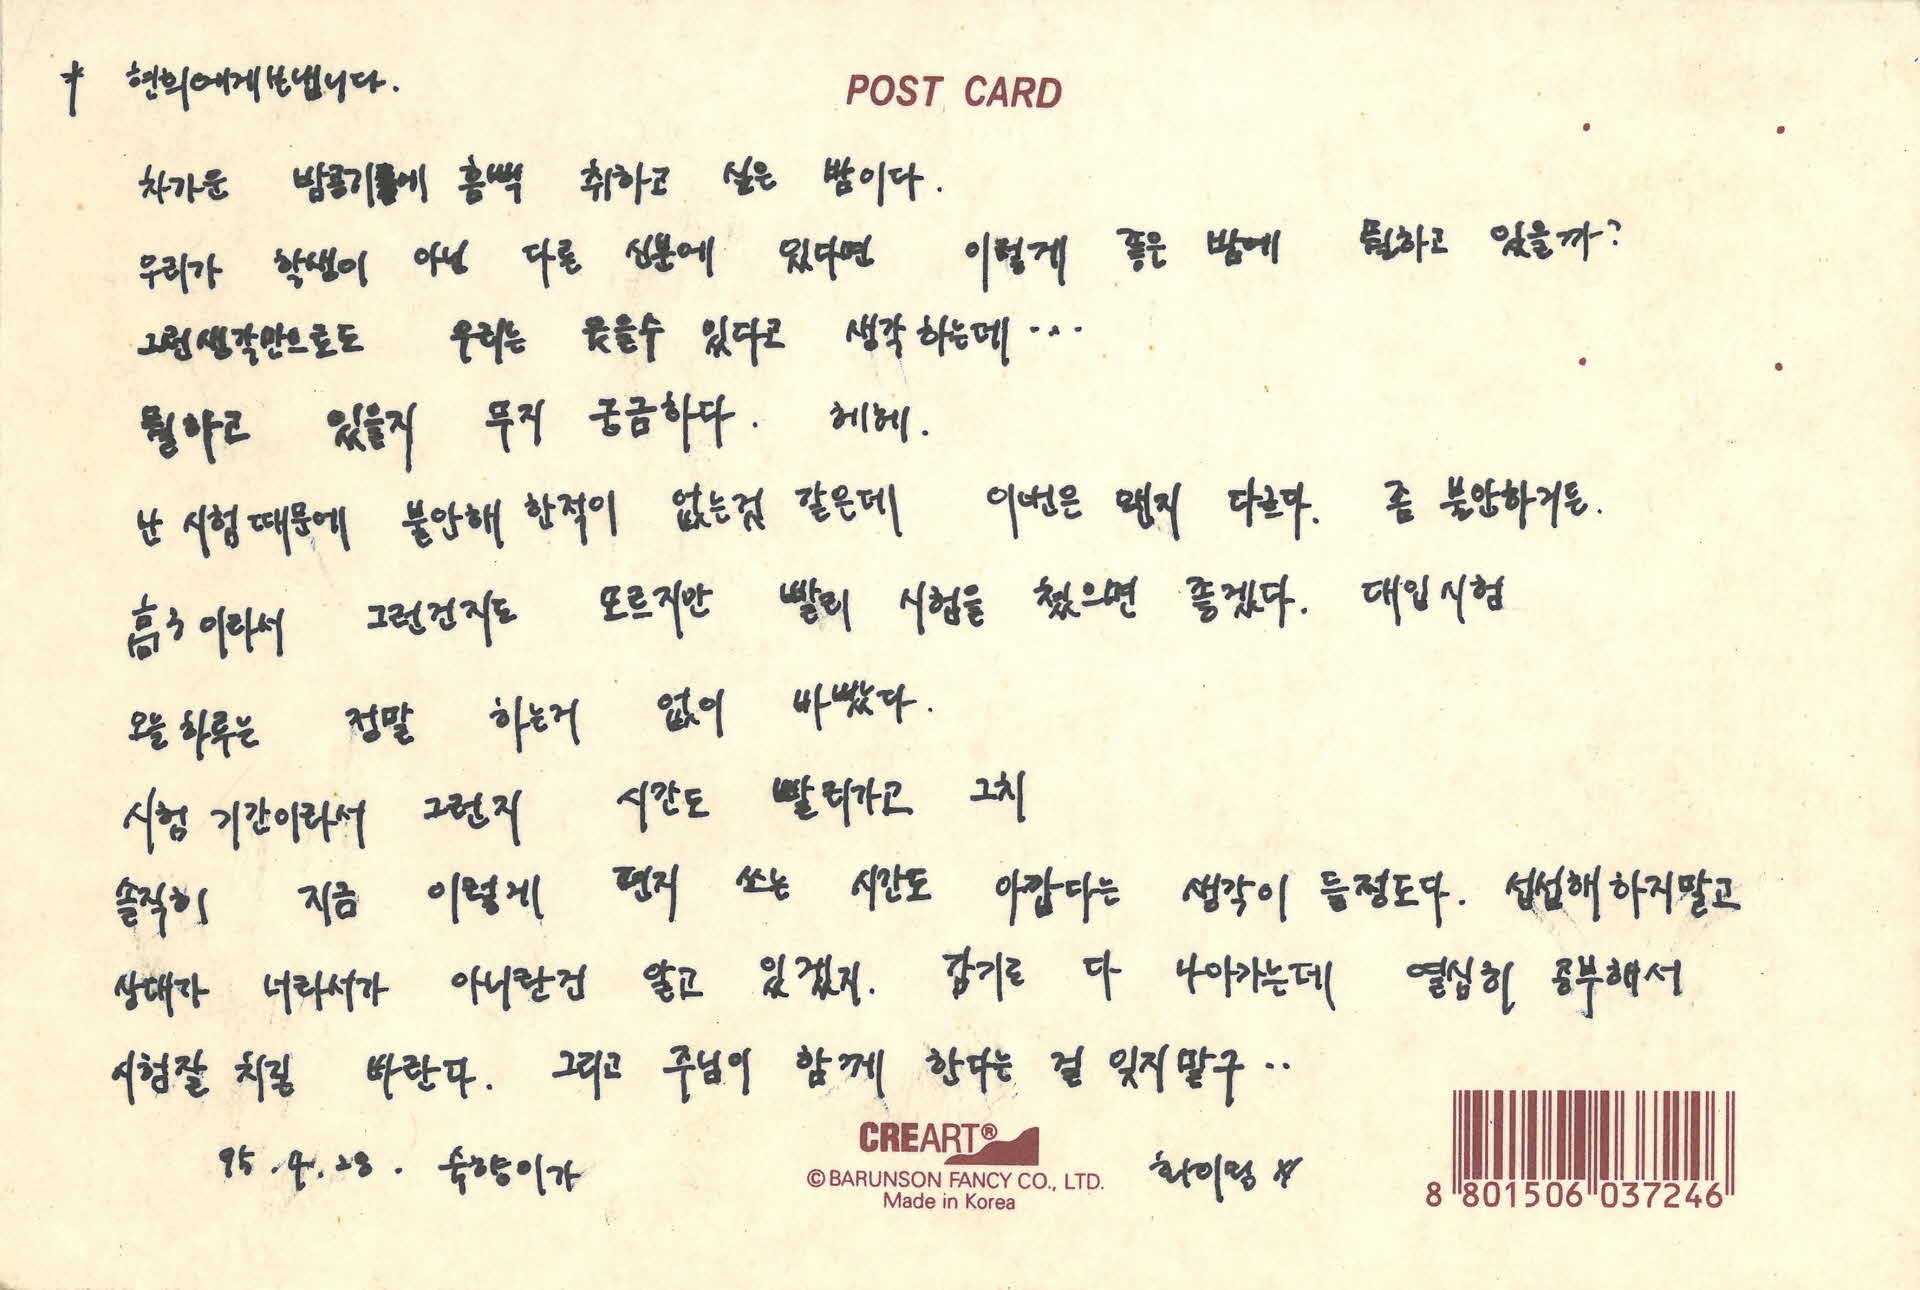 † 현희에게보냅니다.
POST CARD
차가운 밤공기에 흠뻑 취하고 싶은 밤이다.
우리가 학생이 아닌 다른 신분에 있다면 이렇게 좋은 밤에 뭘하고 있을까?
그런생각만으로도 우리는 웃을수 있다고 생각하는데...
뭘하고 있을지 무지 궁금하다. 헤헤.
난 시험때문에 불안해 한적이 없는것 같은데 이번은 왠지 다르다. 좀 불안하거든.
高3이라서 그런건지도 모르지만 빨리 시험을 쳤으면 좋겠다. 대입시험
오늘하루는 정말 하는거 없이 바빴다.
시험 기간이라서 그런지 시간도 빨리가고 그치
솔직히 지금 이렇게 편지 쓰는 시간도 아깝다는 생각이 들정도다. 섭섭해하지말고
상대가 너라서가 아니란건 알고 있겠지. 감기도 다 나아가는데 열심히 공부해서
시험잘 치길 바란다. 그리고 주님이 함께 한다는 걸 잊지말구..
95.4.28. 숙향이가
화이팅
CREART®
© BARUNSON FANCY CO., LTD.
Made in Korea
8 801506 037246